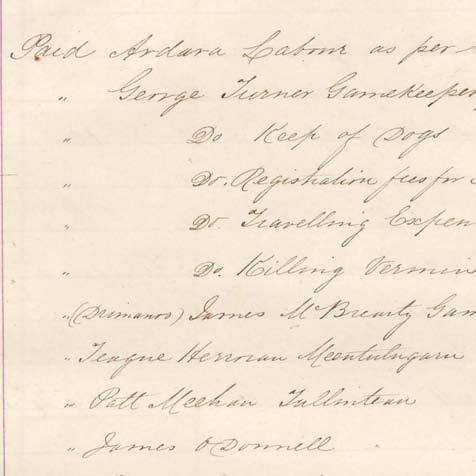 Paid Ardara Labour as per
" George Turner Gamekeeper
" Do Keep of Dogs
" Do. Registration fees for
" Do. Travelling Expen
" Do. Killing Vermin
" (Drimanoo) James McBrearty Gam
" Teague Herroran Meentulugaru
" Patt Meehan Tullintean
" James O'Donnell